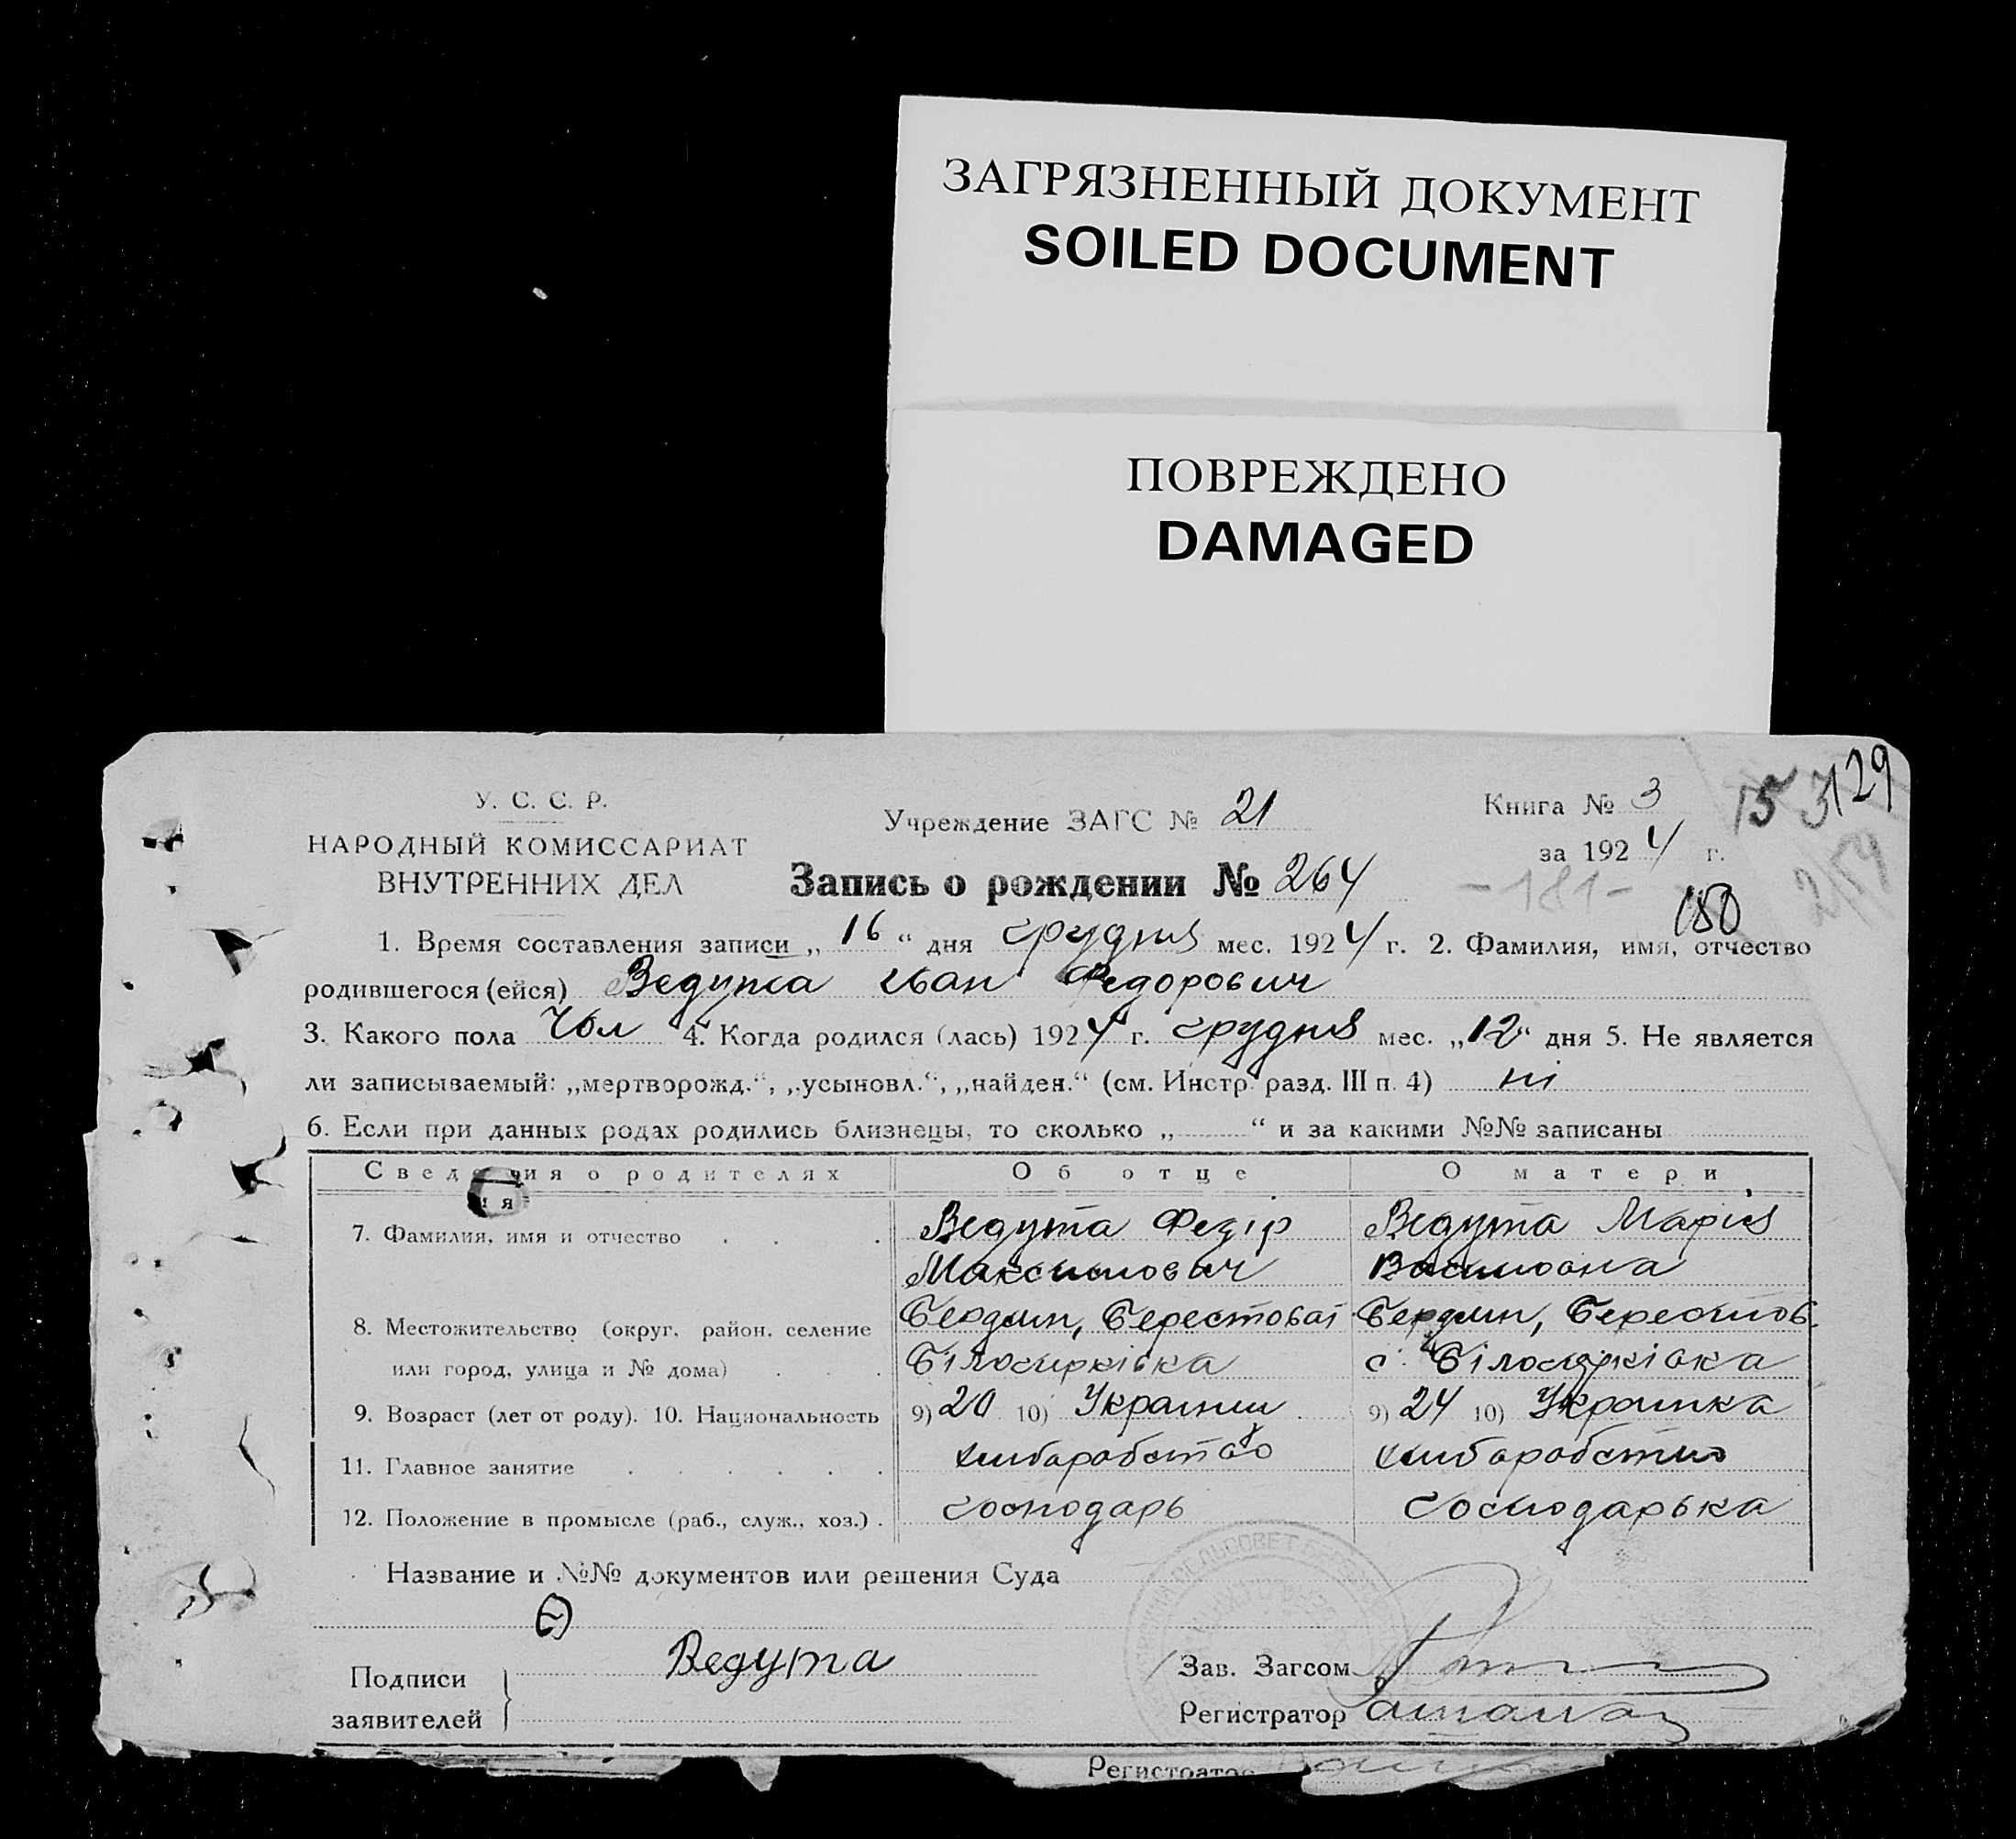 ЗАГРЯЗНЕННЫЙ ДОКУМЕНТ
SOILED DOCUMENT
ПОВРЕЖДЕНО
DAMAGED
15 3/29
У. С. С. Р.
НАРОДНЫЙ КОМИССАРИАТ
ВНУТРЕННИХ ДЕЛ
Учреждение ЗАГС № 21
Книга № 3
за 1924 г.
Запись о рождении № 264
-181-
180
1. Время составления записи „16“ дня грудня мес. 1924 г. 2. Фамилия, имя, отчество
родившегося (ейся) Ведута Іван Федорович
3. Какого пола Чол 4. Когда родился (лась) 1924 г. грудня мес. „12“ дня 5. Не является
ли записываемый: „мертворожд.“, „усыновл.“, „найден.“ (см. Инстр. разд. III п. 4) ні
6. Если при данных родах родились близнецы, то сколько „ “ и за какими №№ записаны
Сведения о родителях Об отце О матери
7. Фамилия, имя и отчество Ведута Федір Ведута Марія
Максимович Василівна
8. Местожительство (округ, район, селение Бердян, Берестоват Бердян, Берестов.
или город, улица и № дома) Білоцирківка с. Білоцирківка
9. Возраст (лет от роду). 10. Национальность 9) 20 10) Украинец 9) 24 10) Украинка
11. Главное занятие хлибаробство хлибаробство
12. Положение в промысле (раб., служ., хоз.) господарь господарька
Название и №№ документов или решения Суда
Подписи
заявителей
Ведута
Зав. Загсом
Регистратор
Регистратор